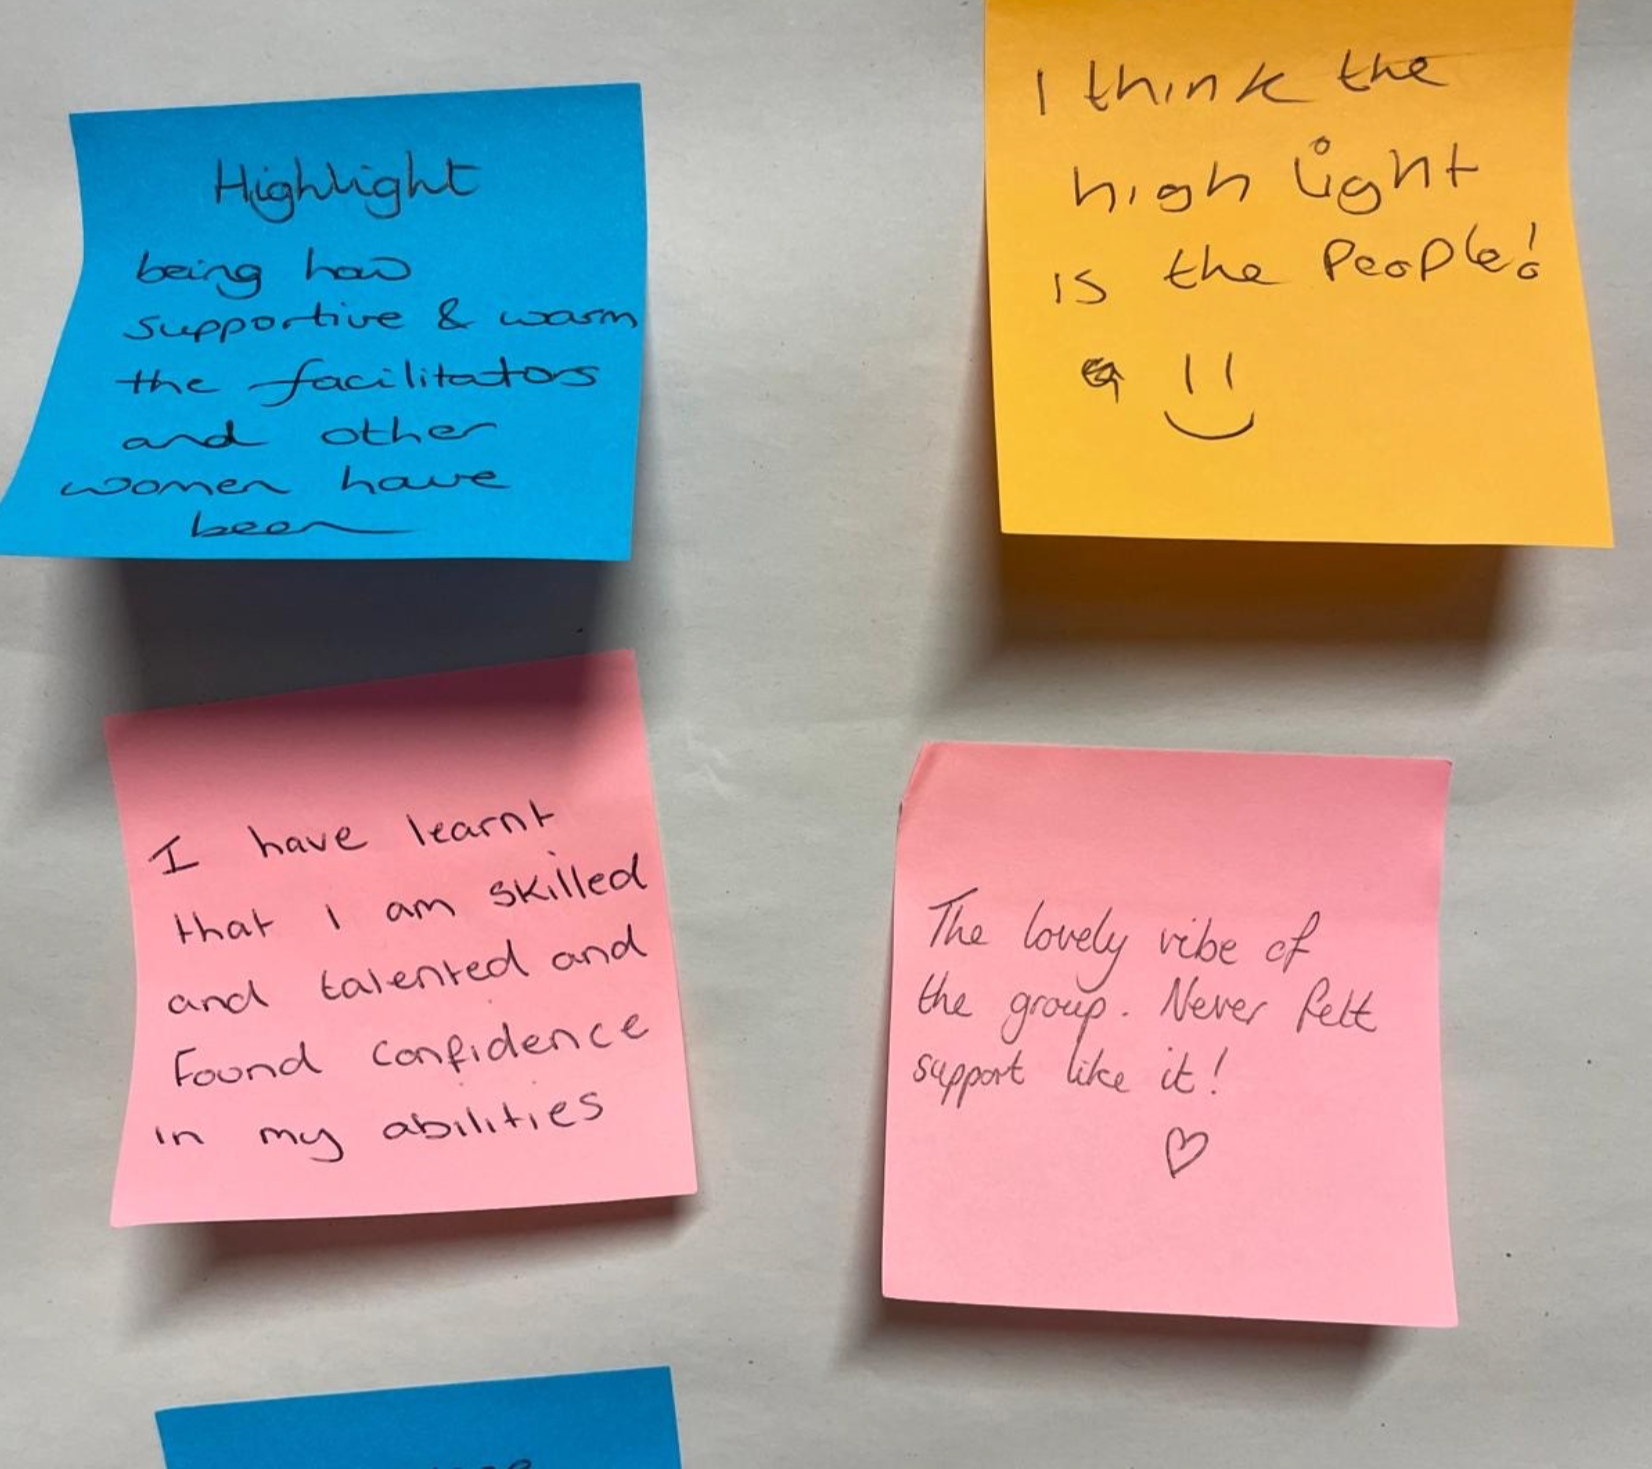 Highlight
being how
supportive & warm
the facilitators
and other
women have
been
I think the
high light
is the People!
I have learnt
that I am skilled
and talented and
Found confidence
in my abilities
The lovely vibe of
the group. Never felt
support like it!